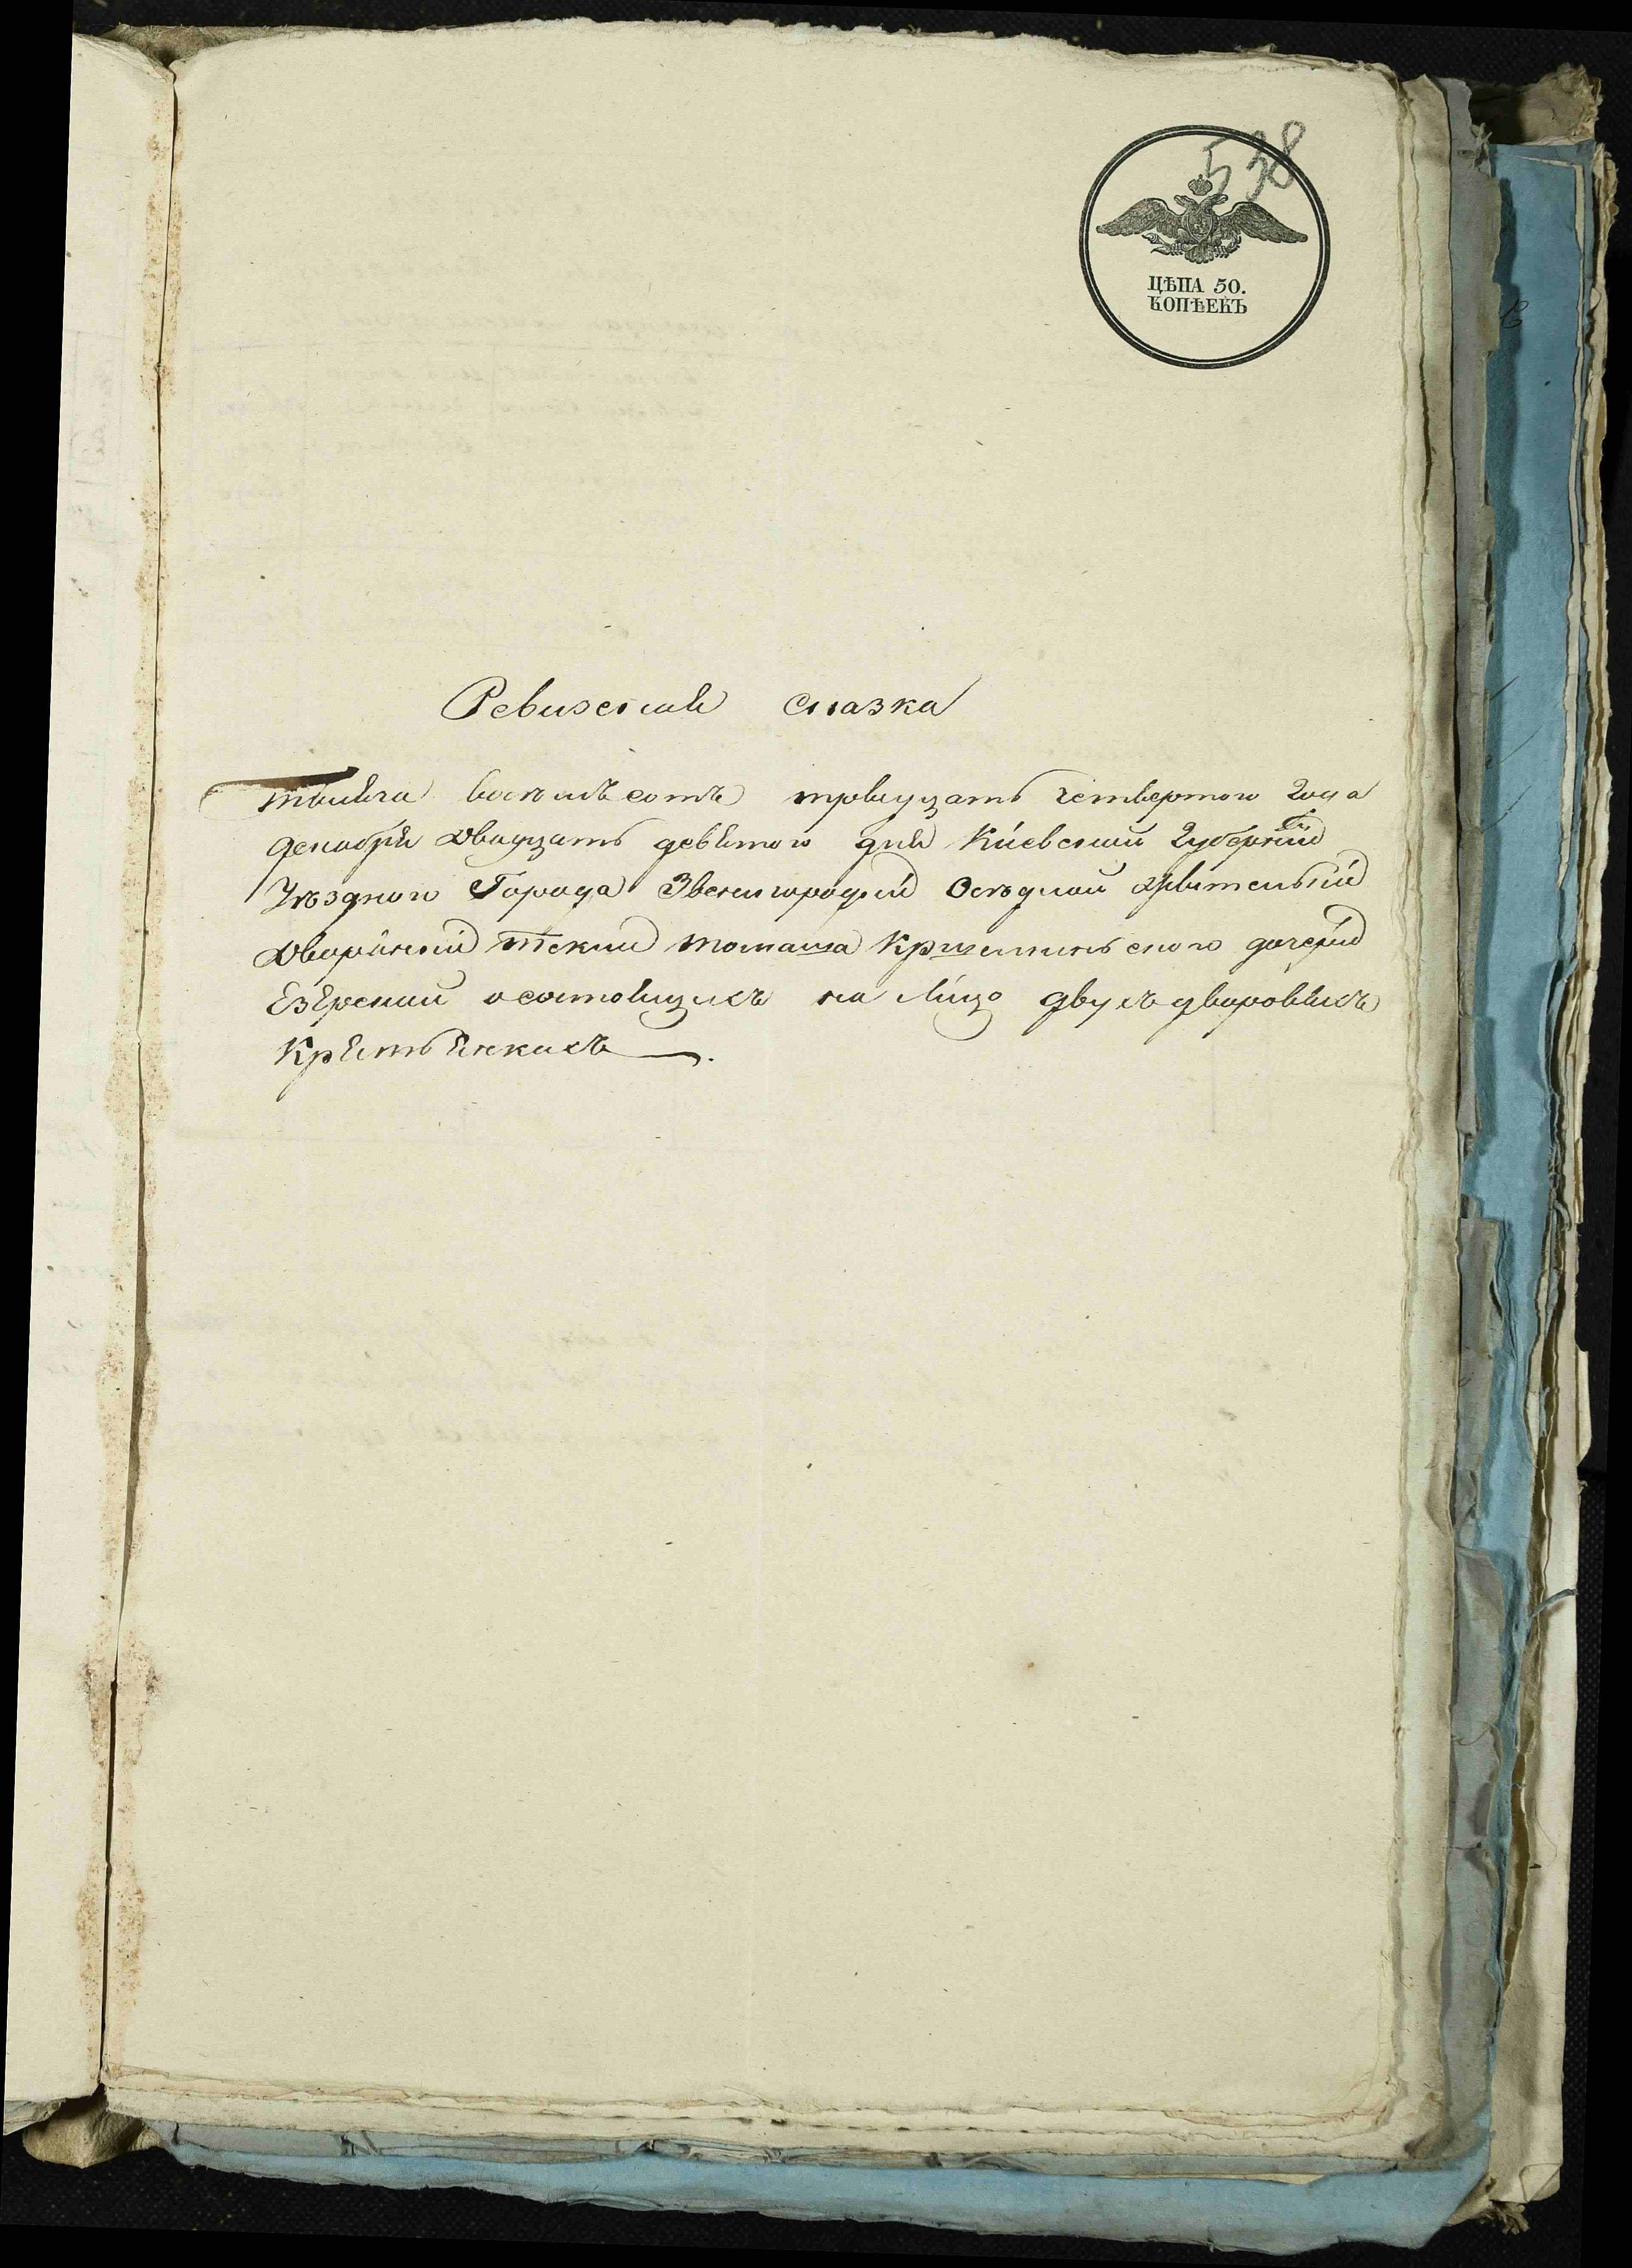 538
ЦѢНА 50.
КОПѢЕКЪ
Ревизская сказка
тысяча восемъсотъ тридцать четвертого Года
декабря двадцать девятого дня Кіевской Губерніи
Уѣздного Города Звенигородки Осѣдлой жительки
Дворянки Теклии томаша дочери
Езерской о состоящихъ на лицо двухъ дворовыхъ
Крестьянкахъ.